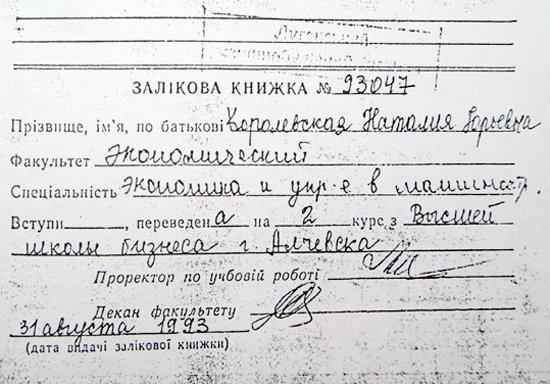 ЗАЛІКОВА КНИЖКА № 93047
Прізвище, ім'я, по батькові Королевская Наталия Юрьевна
Факультет Экономический
Спеціальність Экономика и упр-е в машиностр.
Вступи____, переведена на 2 курс з Высшей
школы бизнеса г. Алчевска
Проректор по учбовій роботі
Декан факультету
31 августа 1993
(дата видачі залікової книжки)